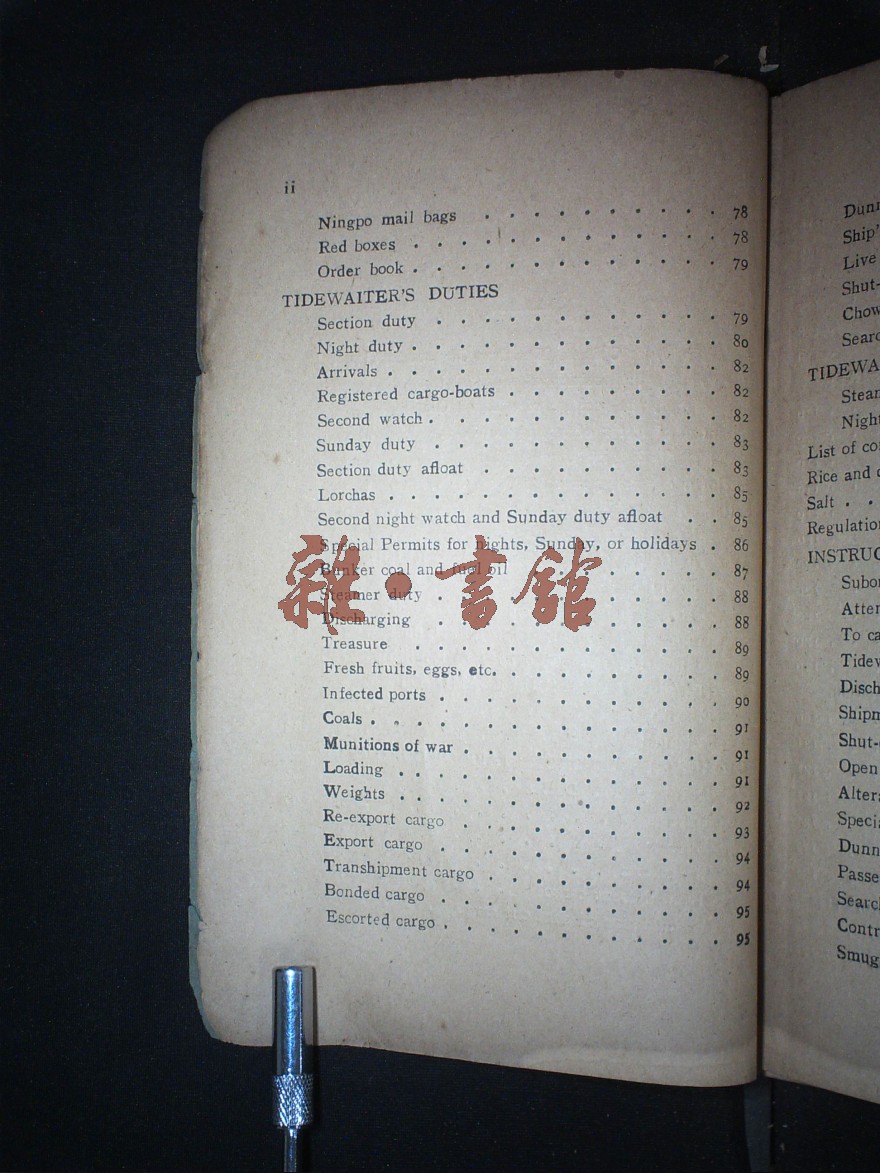 ii
Ningpo mail bags . . . . . . . . . . 78
Red boxes . . . . . . . . . . . . . 78
Order book . . . . . . . . . . . . . 79
TIDEWAITER'S DUTIES
Section duty . . . . . . . . . . . . 79
Night duty . . . . . . . . . . . . . 80
Arrivals . . . . . . . . . . . . . . 82
Registered cargo-boats . . . . . . . . . 82
Second watch . . . . . . . . . . . . 82
Sunday duty . . . . . . . . . . . . 83
Section duty afloat . . . . . . . . . . 83
Lorchas . . . . . . . . . . . . . . 85
Second night watch and Sunday duty afloat . . 85
Special Permits for nights, Sunday, or holidays . 86
Bunker coal and fuel oil . . . . . . . . 87
Steamer duty . . . . . . . . . . . . 88
Discharging . . . . . . . . . . . . 88
Treasure . . . . . . . . . . . . . 89
Fresh fruits, eggs, etc. . . . . . . . . . 89
Infected ports . . . . . . . . . . . . 90
Coals . . . . . . . . . . . . . . . 91
Munitions of war . . . . . . . . . . . 91
Loading . . . . . . . . . . . . . . 91
Weights . . . . . . . . . . . . . . 92
Re-export cargo . . . . . . . . . . . 93
Export cargo . . . . . . . . . . . . 94
Transhipment cargo . . . . . . . . . . 94
Bonded cargo . . . . . . . . . . . . 95
Escorted cargo . . . . . . . . . . . . 95
雜·書館
Live
Shut-
List of
Rice and
Salt . .
To
Shut-
Open